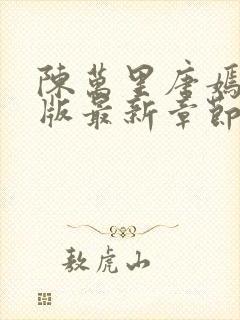 陳萬里唐嫣
版最新章節
敖虎山